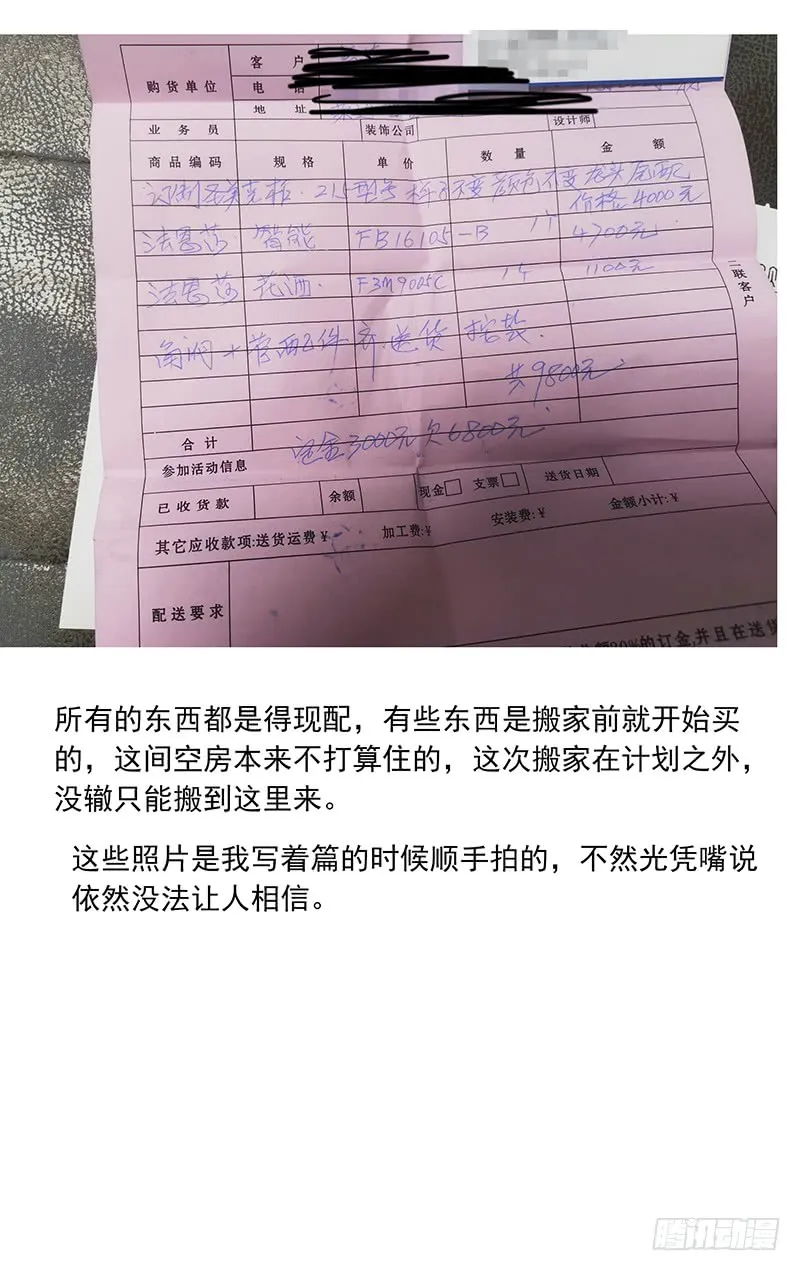 客 户
购货单位
电 话
地 址
业 务 员 装饰公司 设计师
商品编码 规 格 单 价 数 量 金 额
215型号 样子不变 颜色不变
价格4000元
法恩莎 智能 FB16105-B 1个 4700元
法恩莎 花洒 F3M9005C 1个 1100元
二联客户
角阀+管配件 齐 送货
共9800元
合 计
定金3000元欠6800元
参加活动信息
已收货款 余额 现金 支票 送货日期
其它应收款项:送货运费¥ 加工费:¥ 安装费:¥ 金额小计:¥
配送要求
的订金,并且在送货
所有的东西都是得现配，有些东西是搬家前就开始买
的，这间空房本来不打算住的，这次搬家在计划之外，
没辙只能搬到这里来。
这些照片是我写着篇的时候顺手拍的，不然光凭嘴说
依然没法让人相信。
腾讯动漫